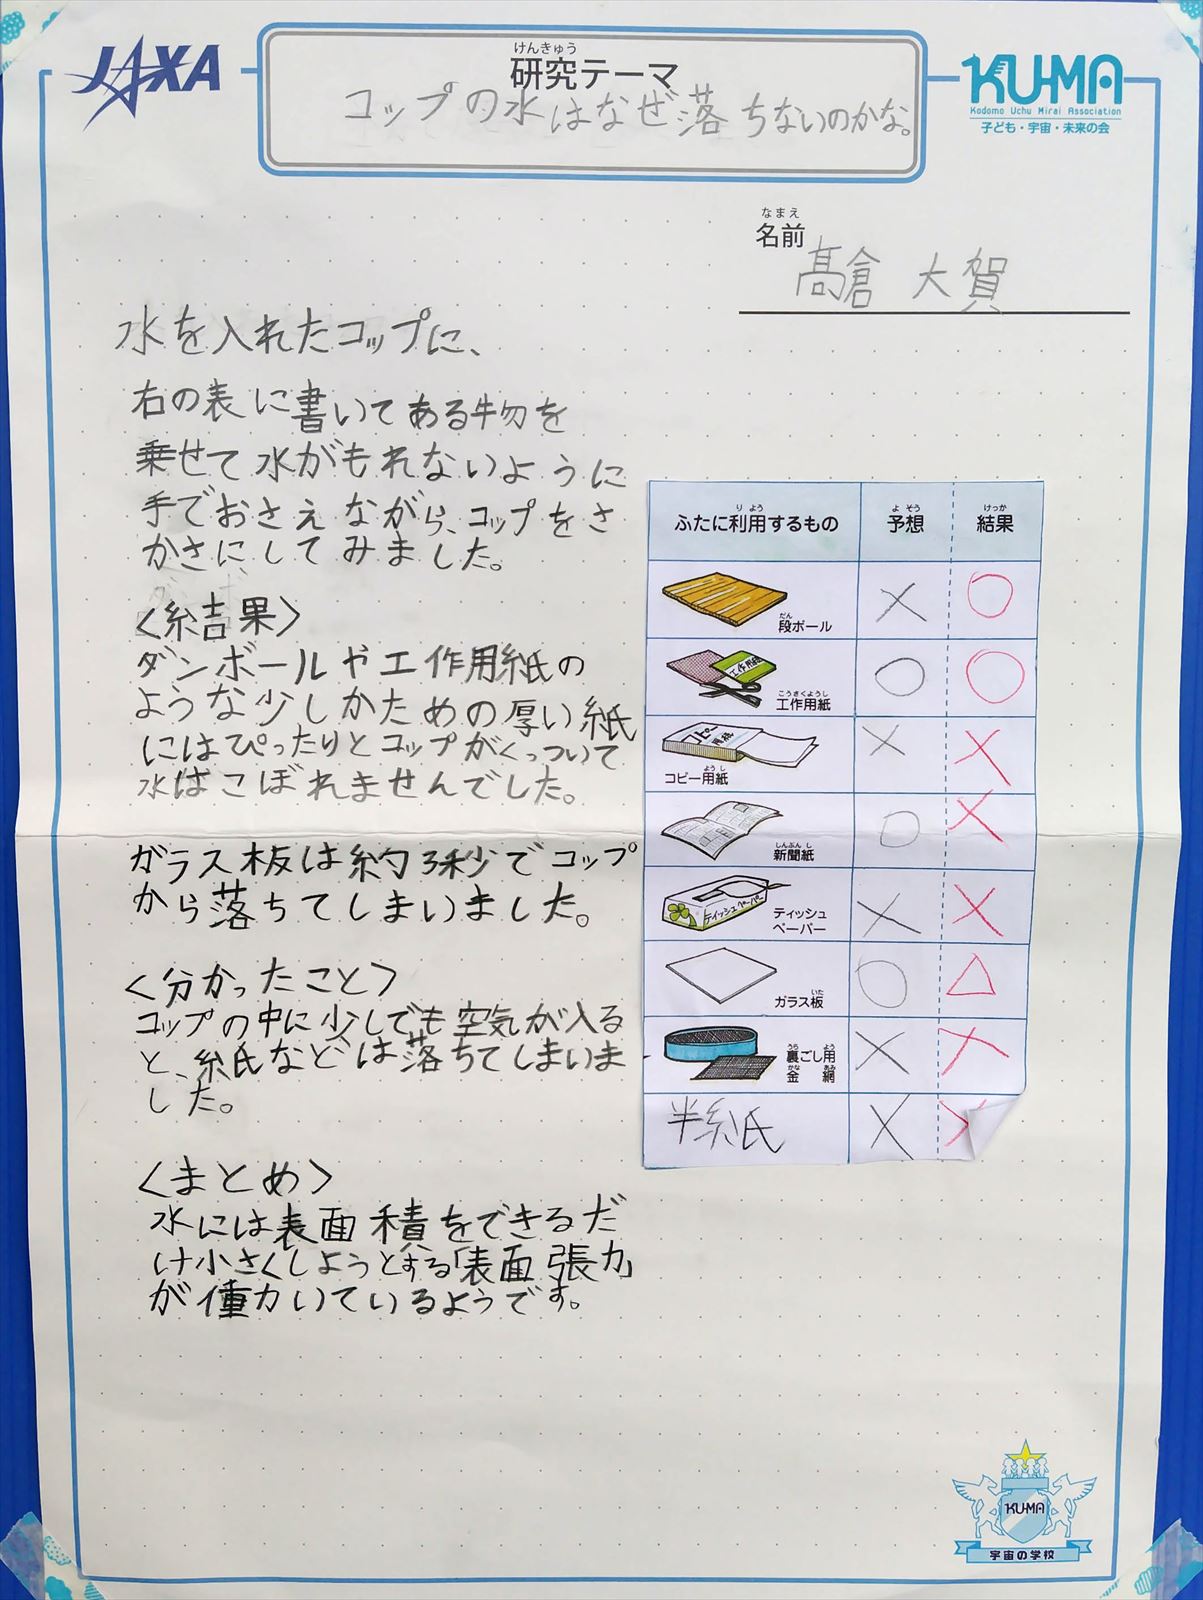 JAXA
けんきゅう
研究テーマ
コップの水はなぜ落ちないのかな。
KU-MA
Kodomo Uchu Mirai Association
子ども・宇宙・未来の会
なまえ
名前
髙倉 大賀
水を入れたコップに、
右の表に書いてある物を
乗せて水がもれないように
手でおさえながら、コップをさ
かさにしてみました。
〈結果〉
ダンボールや工作用紙の
ような少しかための厚い紙
にはぴったりとコップがくっついて
水はこぼれませんでした。
ガラス板は約3秒でコップ
から落ちてしまいました。
〈分かったこと〉
コップの中に少しでも空気が入る
と、紙などは落ちてしまいま
した。
〈まとめ〉
水には表面積をできるだ
け小さくしようとする「表面張力」
が働いているようです。
りよう よそう けっか
ふたに利用するもの 予想 結果
だん
段ボール × ○
工作用紙
こうさくようし
工作用紙 ○ ○
コピー用紙
ようし
コピー用紙 × ×
しんぶんし
新聞紙 ○ ×
ティッシュペーパー
ティッシュ
ペーパー × ×
いた
ガラス板 ○ △
うら よう
裏ごし用
かな あみ
金網 × ×
半紙 × ×
KU-MA
宇宙の学校